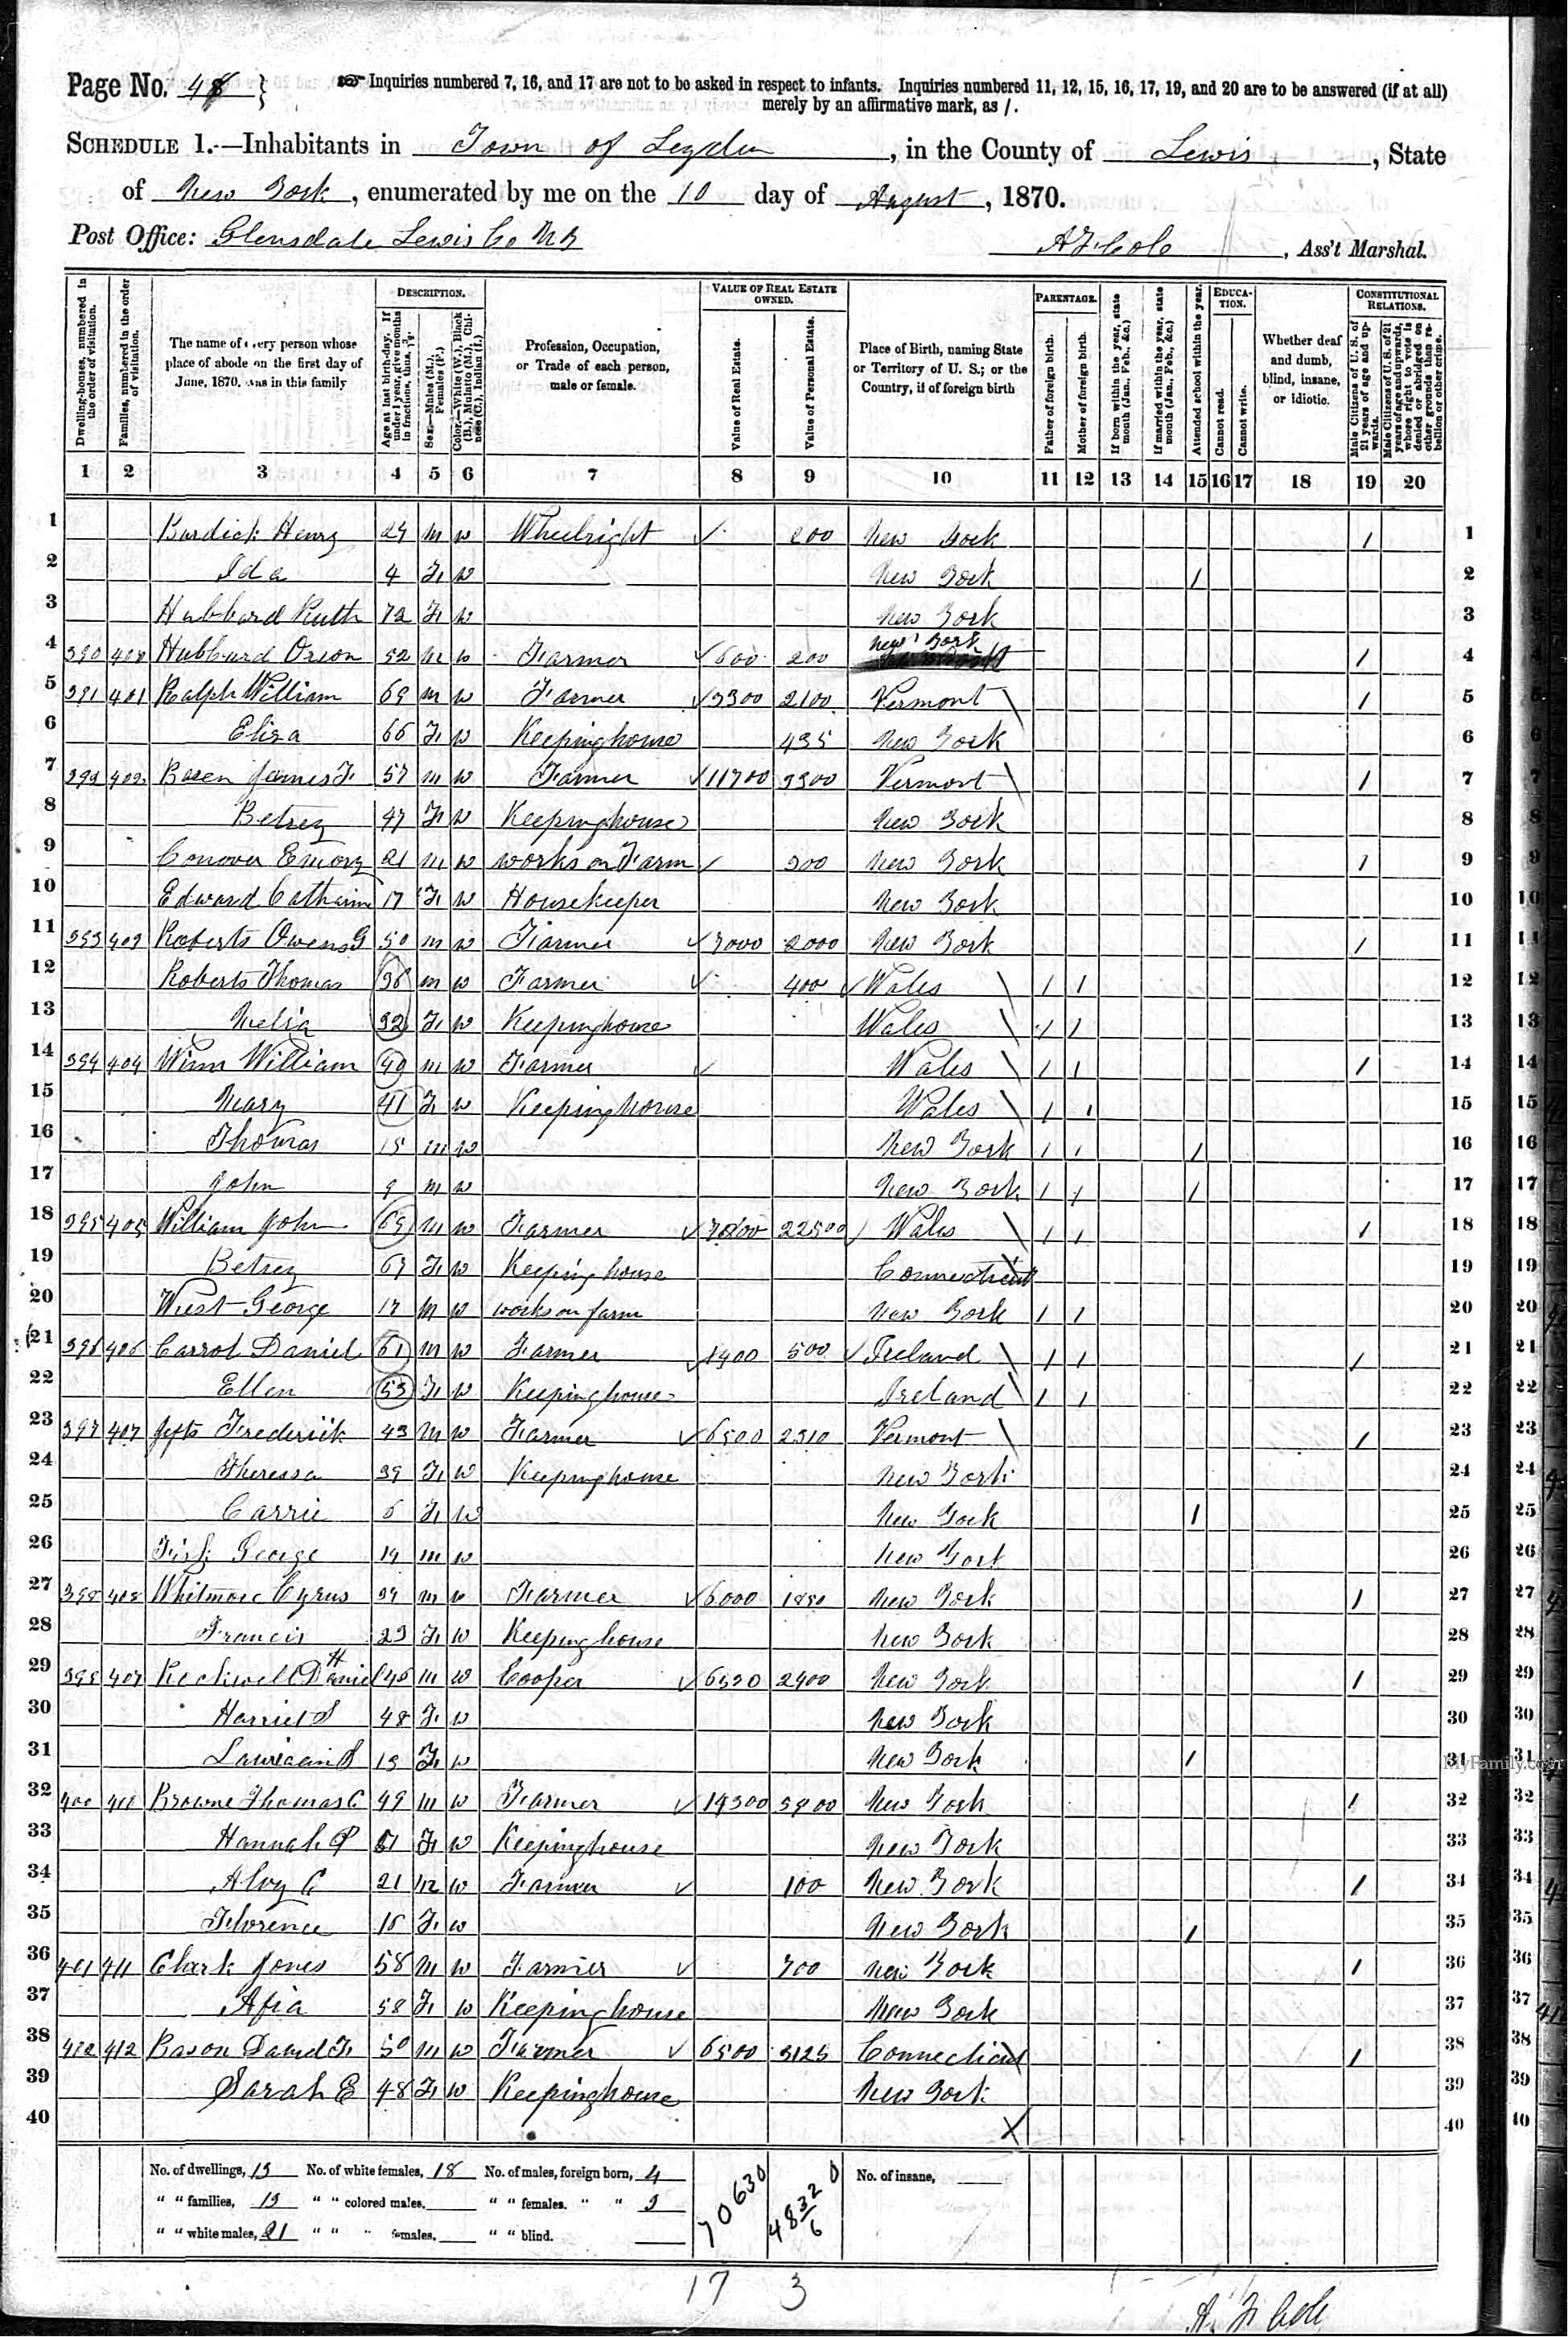 Page No. 48 } Inquiries numbered 7, 16, and 17 are not to be asked in respect to infants. Inquiries numbered 11, 12, 15, 16, 17, 19, and 20 are to be answered (if at all)
merely by an affirmative mark, as /.
SCHEDULE 1.—Inhabitants in Town of Leyden, in the County of Lewis, State
of New York, enumerated by me on the 10 day of August, 1870.
Post Office: Glensdale Lewis Co NY
A F Cole, Ass't Marshal.
Dwelling-houses, numbered in the order of visitation.
Families, numbered in the order of visitation.
The name of every person whose place of abode on the first day of June, 1870, was in this family
DESCRIPTION.
Age at last birth-day. If under 1 year, give months in fractions, thus,
Sex.—Males (M.), Females (F.)
Color.—White (W.), Black (B.), Mulatto (M.), Chinese (C.), Indian (I.)
Profession, Occupation, or Trade of each person, male or female.
VALUE OF REAL ESTATE OWNED.
Value of Real Estate.
Value of Personal Estate.
Place of Birth, naming State or Territory of U. S.; or the Country, if of foreign birth
PARENTAGE.
Father of foreign birth.
Mother of foreign birth.
If born within the year, state month (Jan., Feb., &c.)
If married within the year, state month (Jan., Feb., &c.)
Attended school within the year.
EDUCATION.
Cannot read.
Cannot write.
Whether deaf and dumb, blind, insane, or idiotic.
CONSTITUTIONAL RELATIONS.
Male Citizens of U. S. of 21 years of age and upwards.
Male Citizens of U. S. of 21 years of age and upwards, whose right to vote is denied or abridged on other grounds than rebellion or other crime.
1 2 3 4 5 6 7 8 9 10 11 12 13 14 15 16 17 18 19 20
1 Burdick Henry 29 m w Wheelright 200 New York / 1
2 Ida 4 F w New York / 2
3 Hubbard Ruth 72 F w New York 3
4 390 Hubbard Orson 52 m w Farmer 600 200 New York / 4
5 391 401 Ralph William 69 m w Farmer 3300 2100 Vermont / 5
6 Eliza 66 F w Keepinghouse 435 New York 6
7 392 402 James F 57 m w Farmer 11700 3300 Vermont / 7
8 Betsey 47 F w Keepinghouse New York 8
9 Conover Emory 21 m w works on Farm 300 New York / 9
10 Edward Catharine 17 F w Housekeeper New York 10
11 393 403 Roberts Owens G 50 m w Farmer 7000 2000 New York / 11
12 Roberts Thomas 36 m w Farmer 400 Wales / / 12
13 32 F w Keepinghouse Wales / / 13
14 394 404 Winn William 40 m w Farmer Wales / / / 14
15 Mary 41 F w Keepinghouse Wales / / 15
16 Thomas 15 m w New York / / / 16
17 John 9 m w New York / / / 17
18 395 405 William John 69 m w Farmer 22500 Wales / / / 18
19 Betsey 67 F w Keeping house Connecticut 19
20 West George 17 m w works on farm New York / / 20
21 396 406 Carrol Daniel 61 m w Farmer 1400 500 Ireland / / / 21
22 Ellen 53 F w Keepinghouse Ireland / / 22
23 397 407 Jefts Frederick 43 m w Farmer 6500 2310 Vermont / 23
24 Theressa 39 F w Keepinghouse New York 24
25 Carrie 6 F w New York / 25
26 Fish George 19 m w New York 26
27 398 408 Whitmore Cyrus 39 m w Farmer 6000 1850 New York / 27
28 Francis 23 F w Keeping house New York 28
29 399 409 Daniel H 46 m w Cooper 6530 2400 New York / 29
30 Harriet S 48 F w New York 30
31 13 F w New York / 31
32 400 410 Browne Thomas C 49 m w Farmer 14300 New York / 32
33 Hannah P 51 F w Keepinghouse New York 33
34 Alvy C 21 m w Farmer 100 New York / 34
35 Florence 15 F w New York / 35
36 401 411 Clark Jones 58 m w Farmer 700 New York / 36
37 58 F w Keeping house New York 37
38 402 412 Bason David F 50 m w Farmer 6500 3125 Connecticut / 38
39 Sarah E 48 F w Keepinghouse New York 39
40 X 40
No. of dwellings, 13 No. of white females, 18 No. of males, foreign born, 4 No. of insane,
" " families, 13 " " colored males, " " females, " " 3
" " white males, 21 " " " females, " " blind.
70630
17 3
A. F. Cole
MyFamily.com